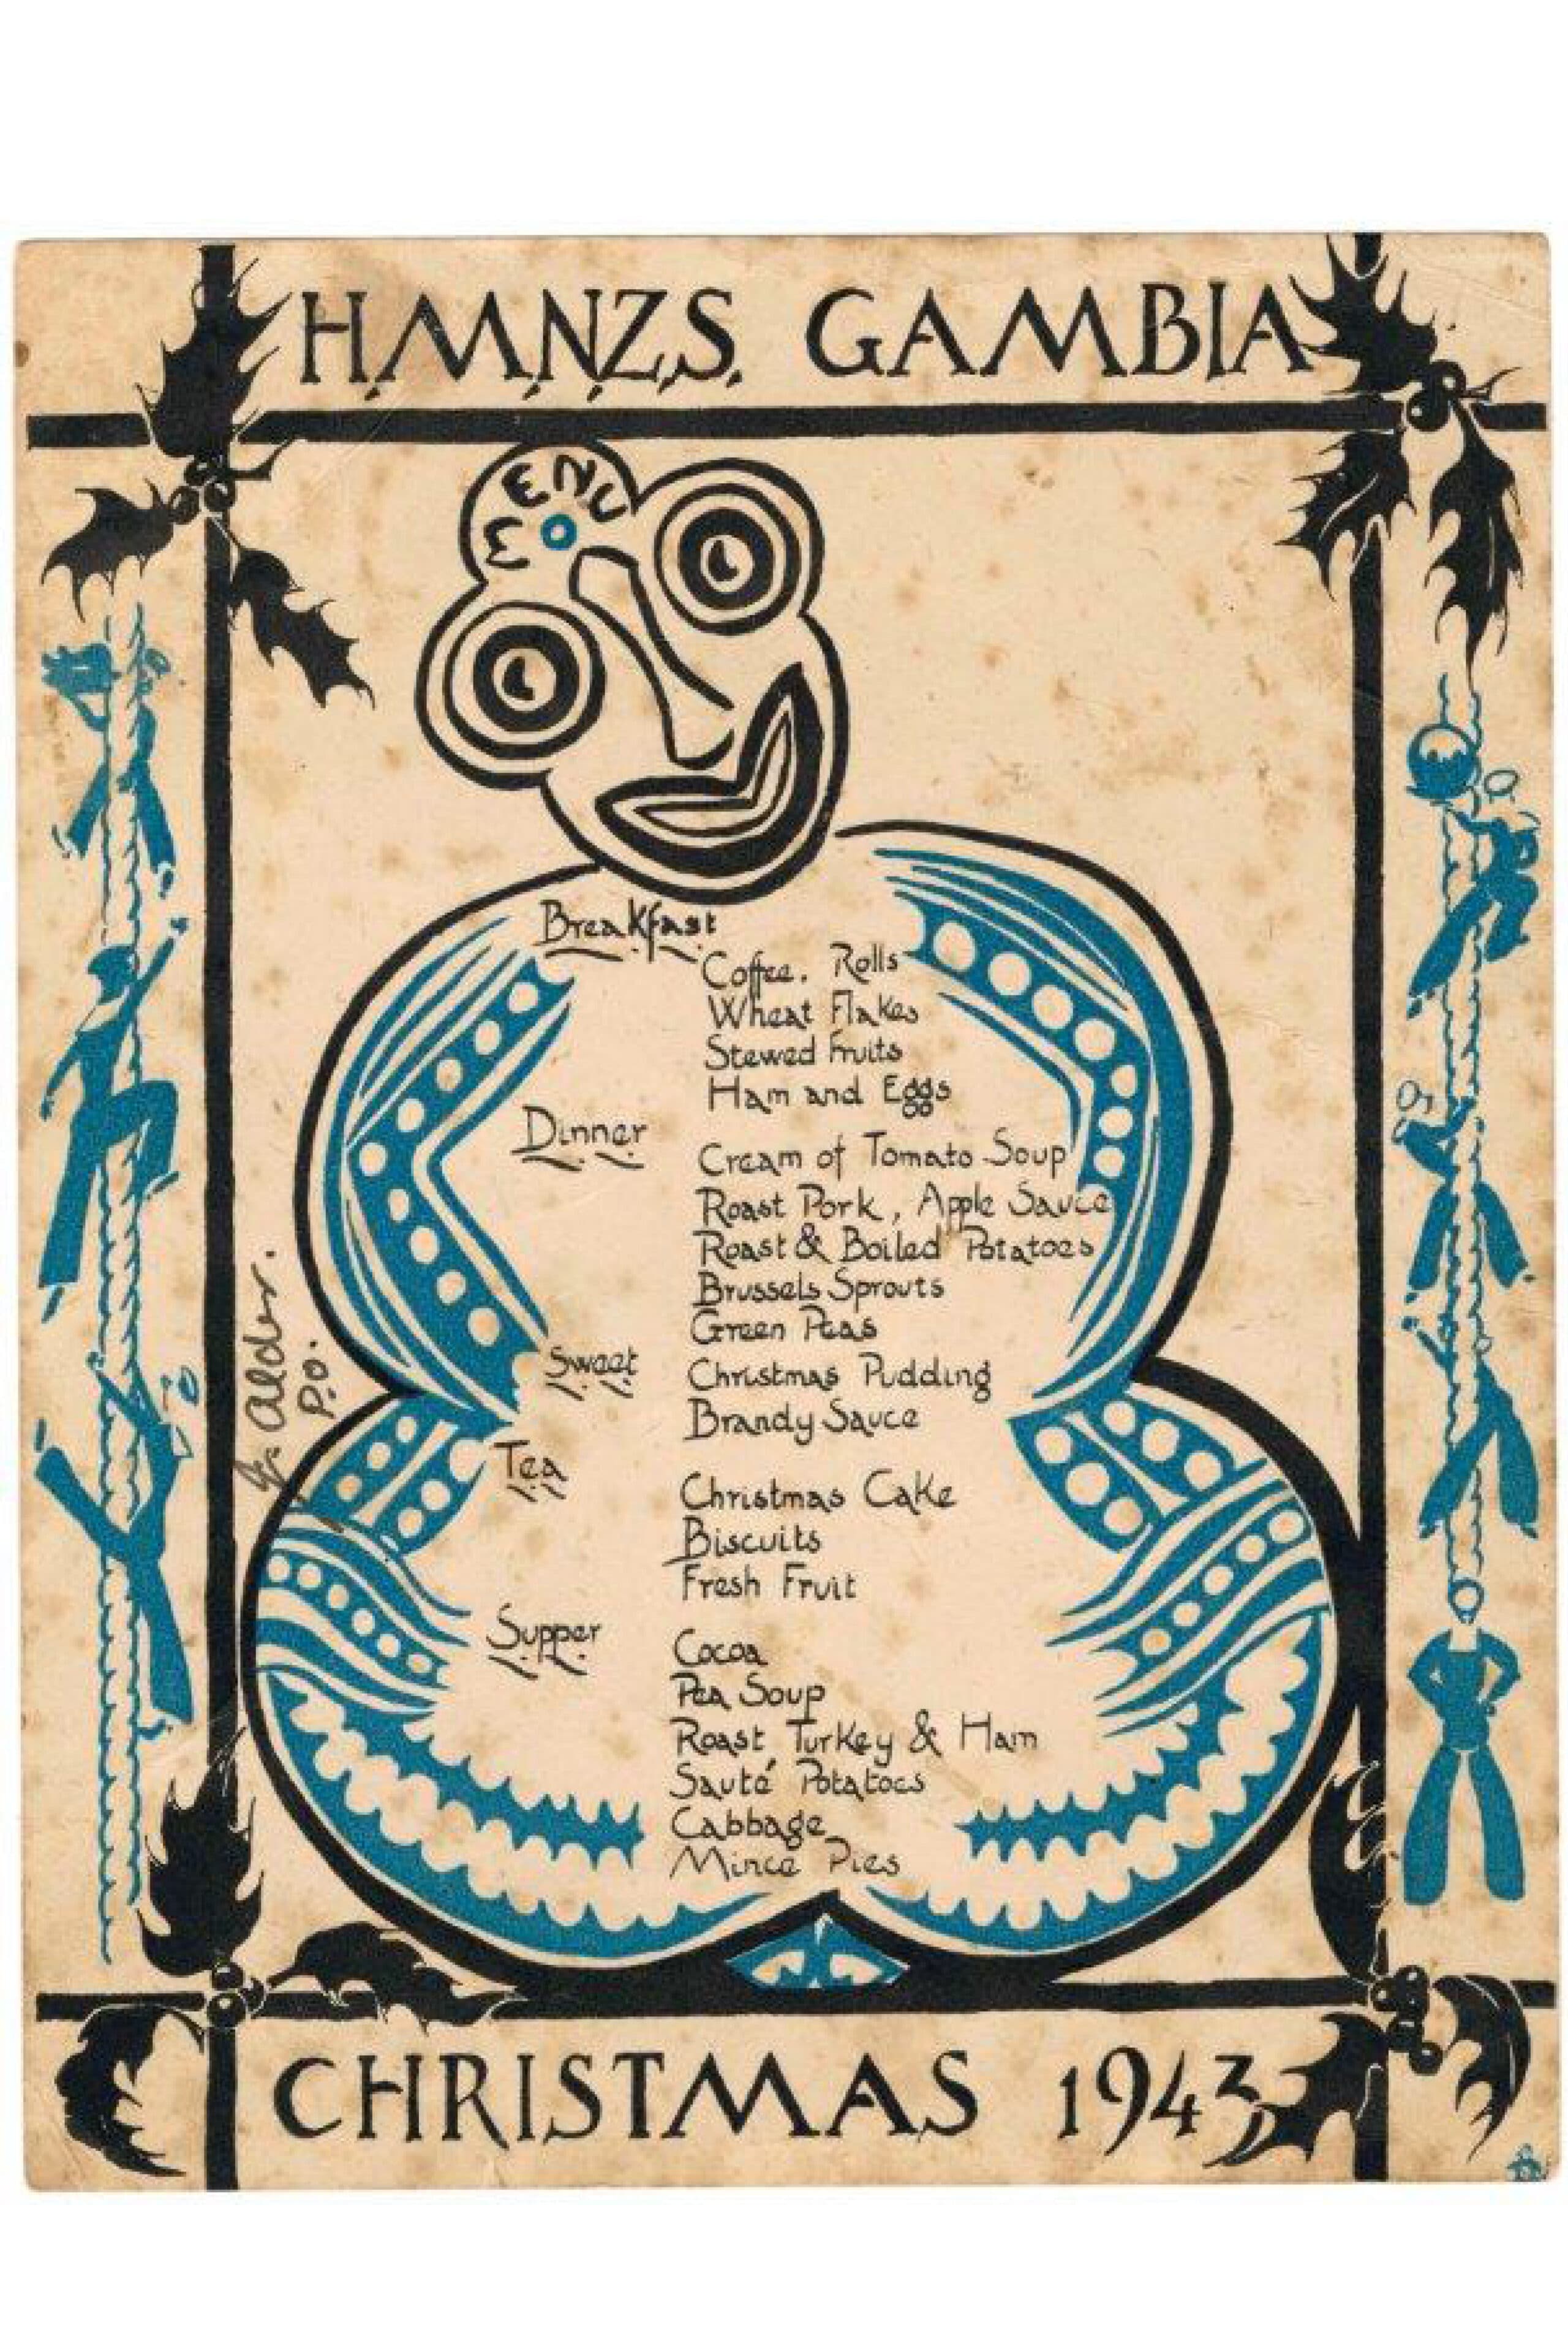 H.M.N.Z.S. GAMBIA
MENU
Breakfast
Coffee. Rolls
Wheat Flakes
Stewed Fruits
Ham and Eggs
Dinner
Cream of Tomato Soup
Roast Pork, Apple Sauce
Roast & Boiled Potatoes
Brussels Sprouts
Green Peas
Sweet
Christmas Pudding
Brandy Sauce
Tea
Christmas Cake
Biscuits
Fresh Fruit
Supper
Cocoa
Pea Soup
Roast Turkey & Ham
Sauté Potatoes
Cabbage
Mince Pies
Alder.
P.O.
CHRISTMAS 1943